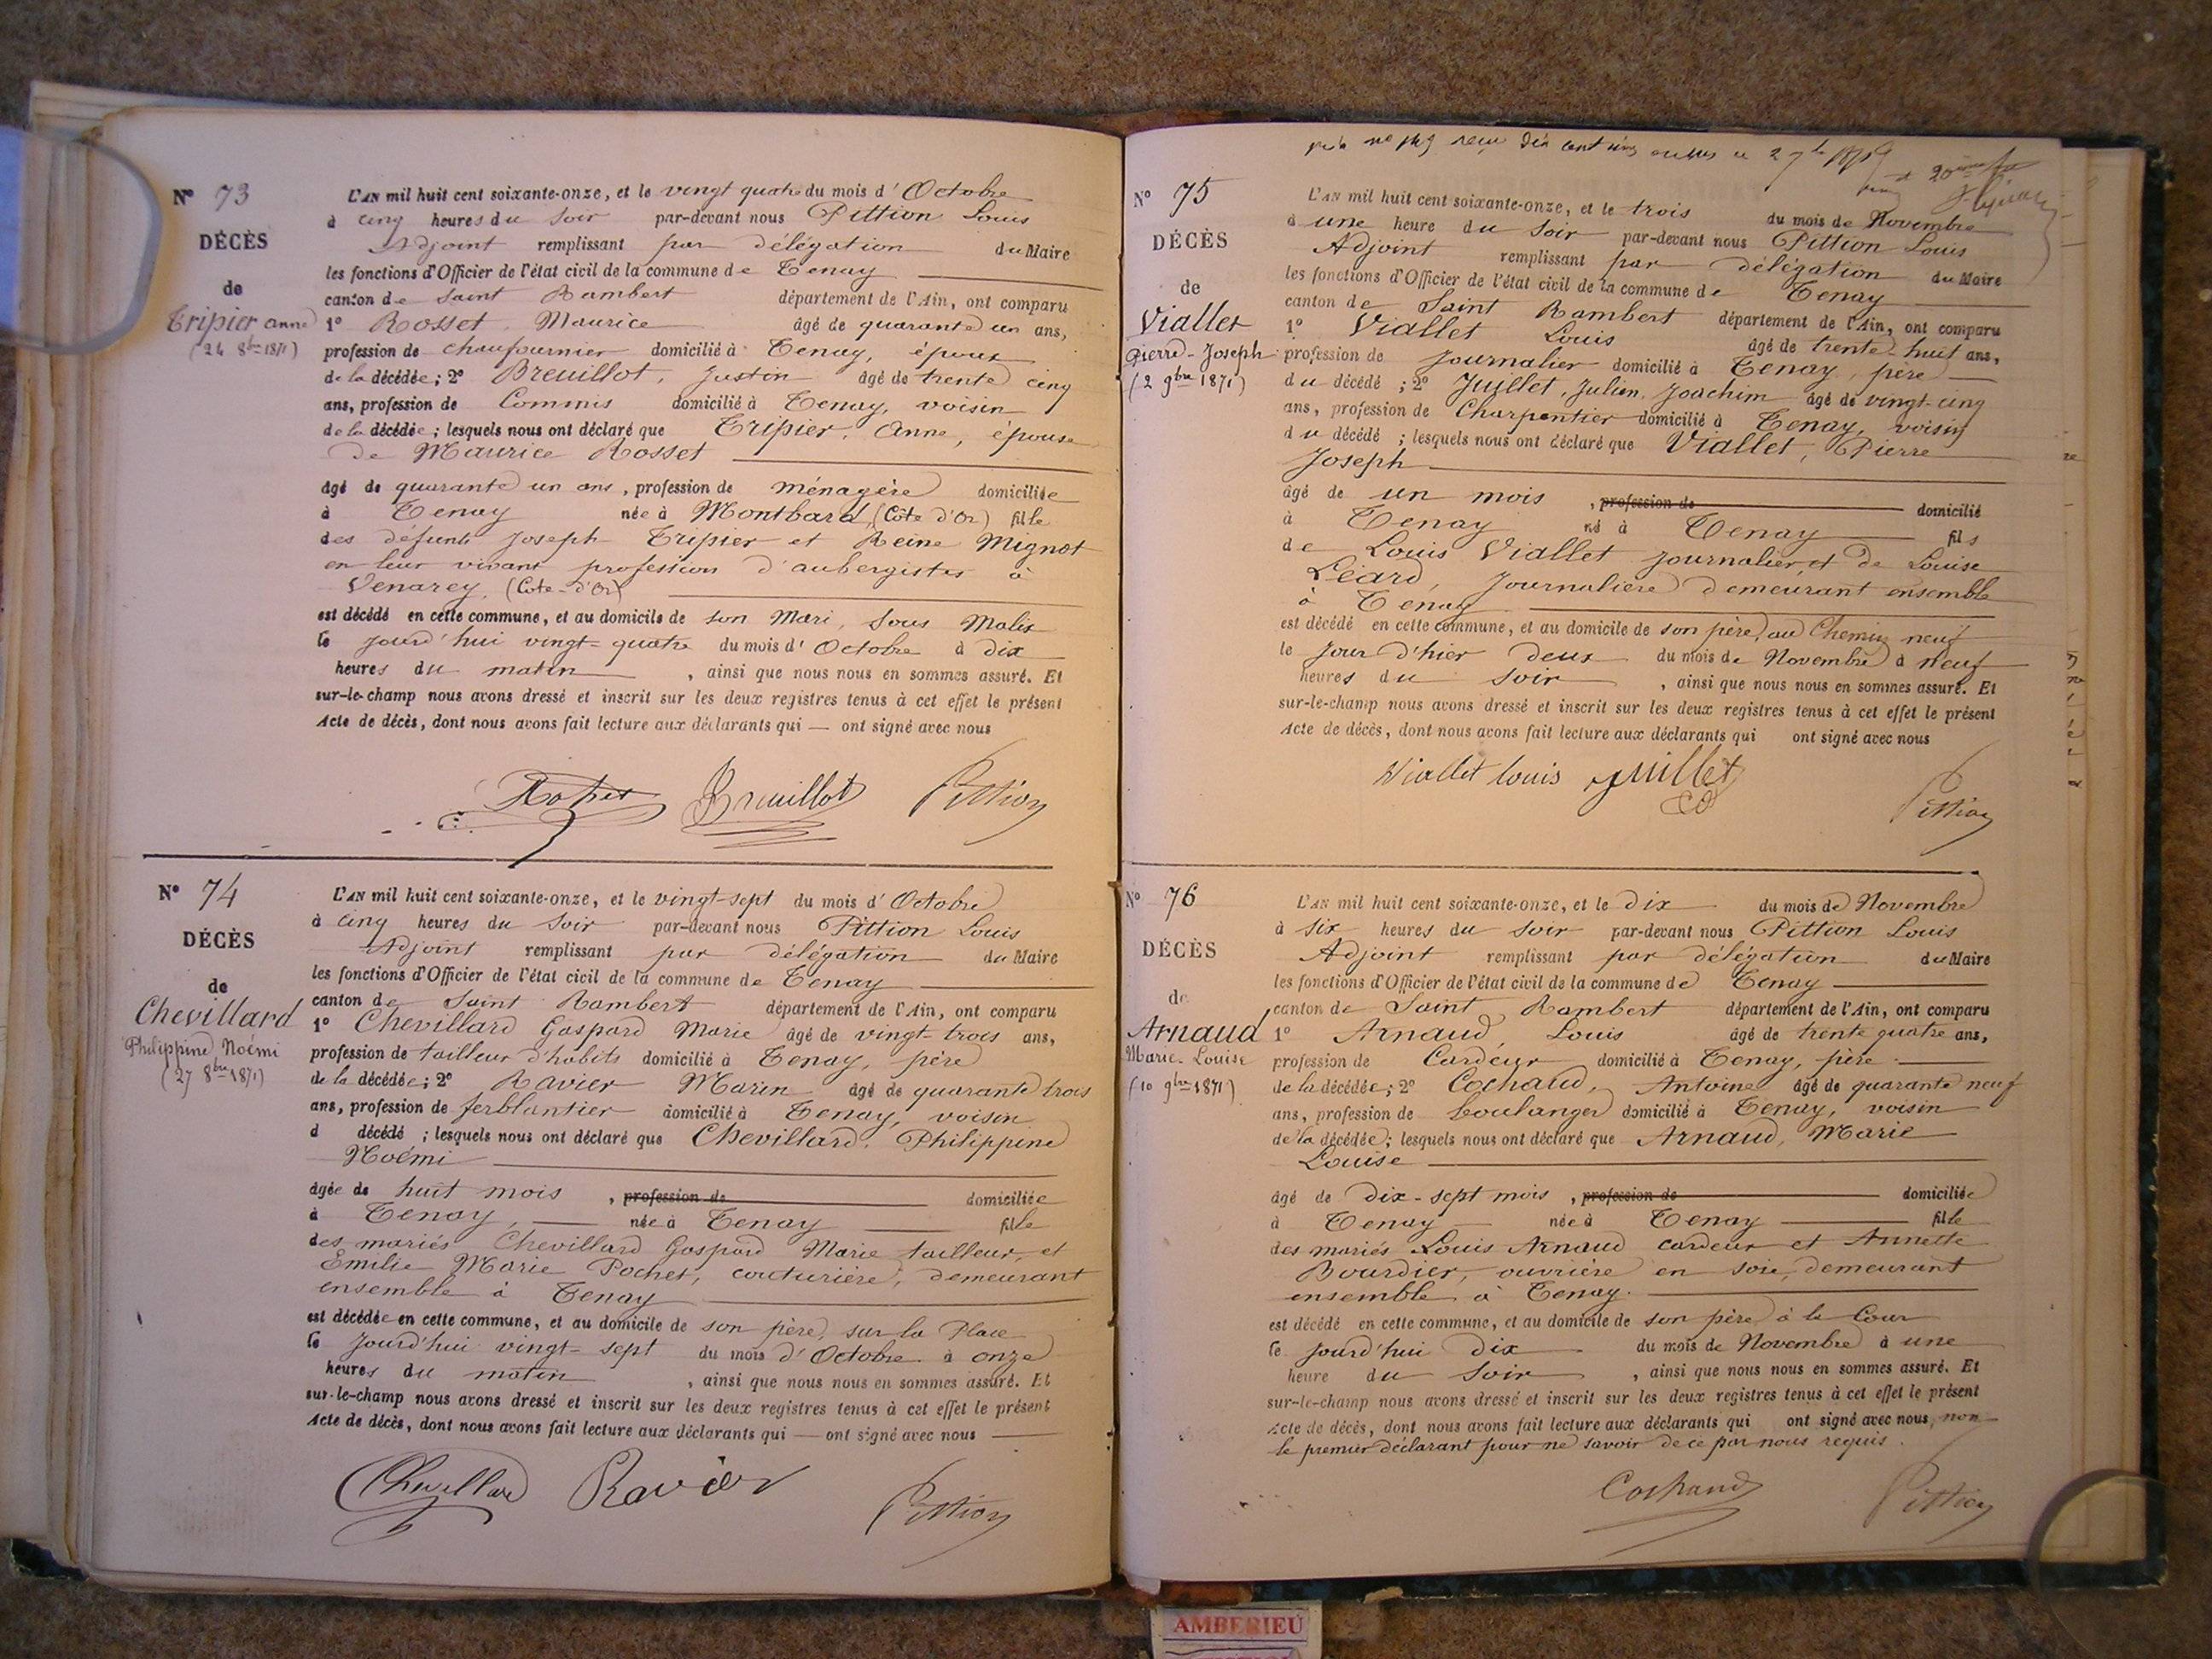 N° 73
DÉCÈS
de
Tripier anne
(24 8bre 1871)
L'AN mil huit cent soixante-onze, et le vingt quatre du mois d'Octobre
à cinq heures du soir par-devant nous Pittion Louis
Adjoint remplissant par délégation du Maire
les fonctions d'Officier de l'état civil de la commune de Tenay
canton de Saint Rambert département de l'Ain, ont comparu
1° Rosset, Maurice âgé de quarante un ans,
profession de chaufournier domicilié à Tenay, époux
de la décédée; 2° Breuillot, Justin âgé de trente cinq
ans, profession de Commis domicilié à Tenay, voisin
de la décédée; lesquels nous ont déclaré que Tripier, Anne, épouse
de Maurice Rosset
âgé de quarante un ans, profession de ménagère domiciliée
à Tenay née à Montbard, (Côte d'Or) fille
des défunts Joseph Tripier et Reine Mignot
en leur vivant profession d'aubergistes à
Venarey, (Côte-d'Or)
est décédé en cette commune, et au domicile de son Mari, Sous Malix
le jourd'hui vingt-quatre du mois d'Octobre à dix
heures du matin, ainsi que nous nous en sommes assuré. Et
sur-le-champ nous avons dressé et inscrit sur les deux registres tenus à cet effet le présent
Acte de décès, dont nous avons fait lecture aux déclarants qui — ont signé avec nous
Breuillot Pittion
N° 74
DÉCÈS
de
Chevillard
Philippine Noémi
(27 8bre 1871)
L'AN mil huit cent soixante-onze, et le vingt-sept du mois d'Octobre
à cinq heures du soir par-devant nous Pittion Louis
Adjoint remplissant par délégation du Maire
les fonctions d'Officier de l'état civil de la commune de Tenay
canton de Saint Rambert département de l'Ain, ont comparu
1° Chevillard Gaspard Marie âgé de vingt-trois ans,
profession de tailleur d'habits domicilié à Tenay, père
de la décédée; 2° Ravier Marin âgé de quarante trois
ans, profession de ferblantier domicilié à Tenay, voisin
d décédé; lesquels nous ont déclaré que Chevillard, Philippine
Noémi
âgée de huit mois, profession de domiciliée
à Tenay, née à Tenay fille
des mariés Chevillard Gaspard Marie tailleur, et
Emilie Marie Pochet, couturière, demeurant
ensemble à Tenay
est décédée en cette commune, et au domicile de son père, sur la Place
le jourd'hui vingt-sept du mois d'Octobre à onze
heures du matin, ainsi que nous nous en sommes assuré. Et
sur-le-champ nous avons dressé et inscrit sur les deux registres tenus à cet effet le présent
Acte de décès, dont nous avons fait lecture aux déclarants qui — ont signé avec nous
Chevillard Ravier Pittion
N° 75
DÉCÈS
de
Viallet
Pierre-Joseph
(2 9bre 1871)
L'AN mil huit cent soixante-onze, et le trois du mois de Novembre
à une heure du soir par-devant nous Pittion Louis
Adjoint remplissant par délégation du Maire
les fonctions d'Officier de l'état civil de la commune de Tenay
canton de Saint Rambert département de l'Ain, ont comparu
1° Viallet Louis âgé de trente-huit ans,
profession de journalier domicilié à Tenay, père
du décédé; 2° Juillet, Julien, Joachim âgé de vingt-cinq
ans, profession de Charpentier domicilié à Tenay, voisin
du décédé; lesquels nous ont déclaré que Viallet, Pierre
Joseph
âgé de un mois, profession de domicilié
à Tenay né à Tenay fils
de Louis Viallet journalier, et de Louise
Léard, journalière demeurant ensemble
à Tenay
est décédé en cette commune, et au domicile de son père, au Chemin neuf
le jour d'hier deux du mois de Novembre à neuf
heures du soir, ainsi que nous nous en sommes assuré. Et
sur-le-champ nous avons dressé et inscrit sur les deux registres tenus à cet effet le présent
Acte de décès, dont nous avons fait lecture aux déclarants qui ont signé avec nous
Viallet louis Juillet Pittion
N° 76
DÉCÈS
de
Arnaud
Marie-Louise
(10 9bre 1871)
L'AN mil huit cent soixante-onze, et le dix du mois de Novembre
à six heures du soir par-devant nous Pittion Louis
Adjoint remplissant par délégation du Maire
les fonctions d'Officier de l'état civil de la commune de Tenay
canton de Saint Rambert département de l'Ain, ont comparu
1° Arnaud, Louis âgé de trente quatre ans,
profession de Cardeur domicilié à Tenay, père
de la décédée; 2° Cochaud, Antoine âgé de quarante neuf
ans, profession de boulanger domicilié à Tenay, voisin
de la décédée; lesquels nous ont déclaré que Arnaud, Marie
Louise
âgé de dix-sept mois, profession de domiciliée
à Tenay née à Tenay fille
des mariés Louis Arnaud cardeur et Annette
Bourdier, ouvrière en soie, demeurant
ensemble à Tenay.
est décédé en cette commune, et au domicile de son père à la Cour
le jourd'hui dix du mois de Novembre à une
heure du soir, ainsi que nous nous en sommes assuré. Et
sur-le-champ nous avons dressé et inscrit sur les deux registres tenus à cet effet le présent
Acte de décès, dont nous avons fait lecture aux déclarants qui ont signé avec nous, non
le premier déclarant pour ne savoir de ce par nous requis.
Cochaud Pittion
AMBERIEU